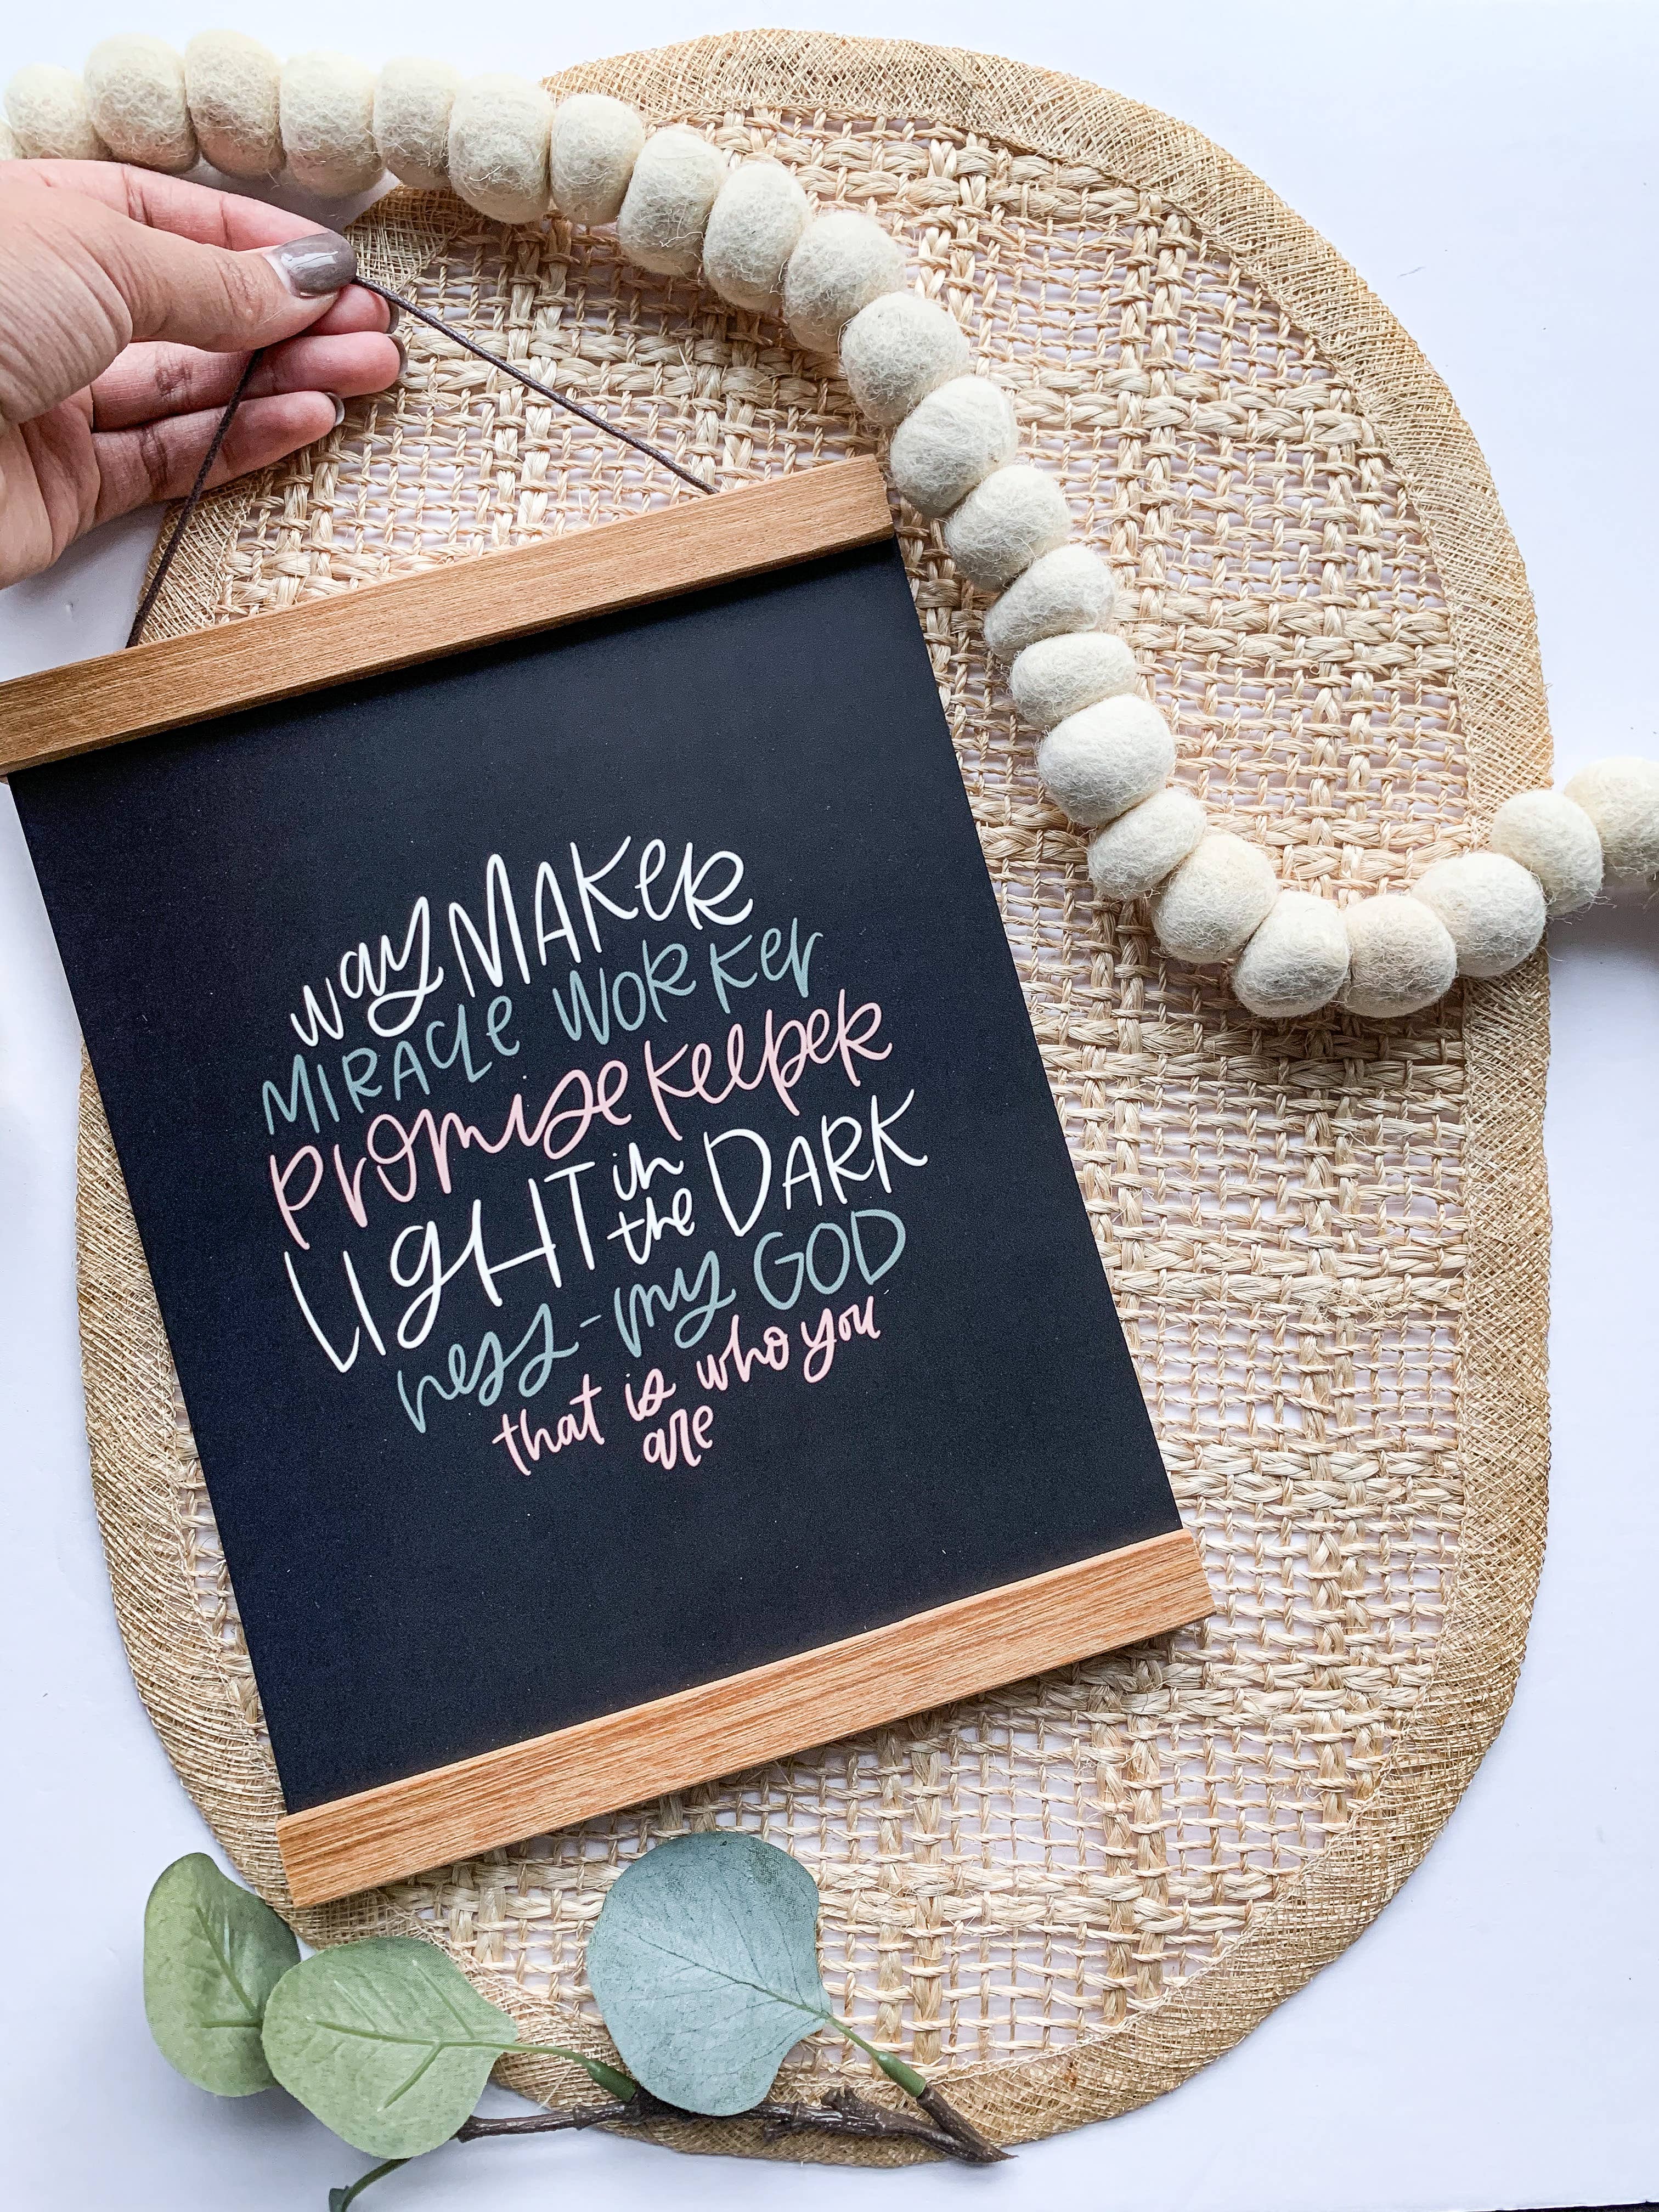 way MAKER
MIRACLE WORKER
promise keeper
LIGHT in the DARK
ness - my GOD
that is who you
are